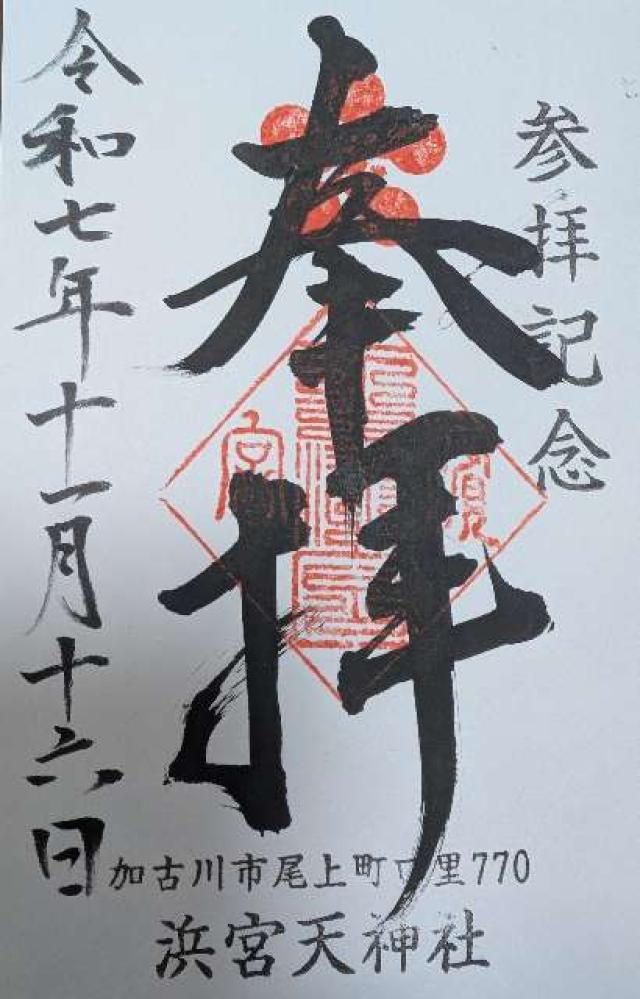 参拝記念
奉拝
令和七年十一月十六日
加古川市尾上町口里770
浜宮天神社